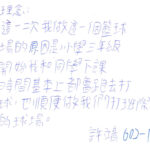 理念:
這一次我做這一個籃球
場的原因是小學三年級
開始我和同學下課
時間基本上都會跑去打
球,也順便做我們打出
的球場。
許 602-1